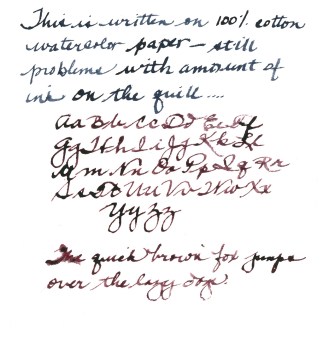 This is written on 100% cotton
watercolor paper — still
problems with amount of
ink on the quill....
Aa Bb Cc Dd Ee Ff
Gg Hh Ii Jj Kk Ll
Mm Nn Oo Pp Qq Rr
Ss Tt Uu Vv Ww Xx
Yy Zz
The quick brown fox jumps
over the lazy dogs.